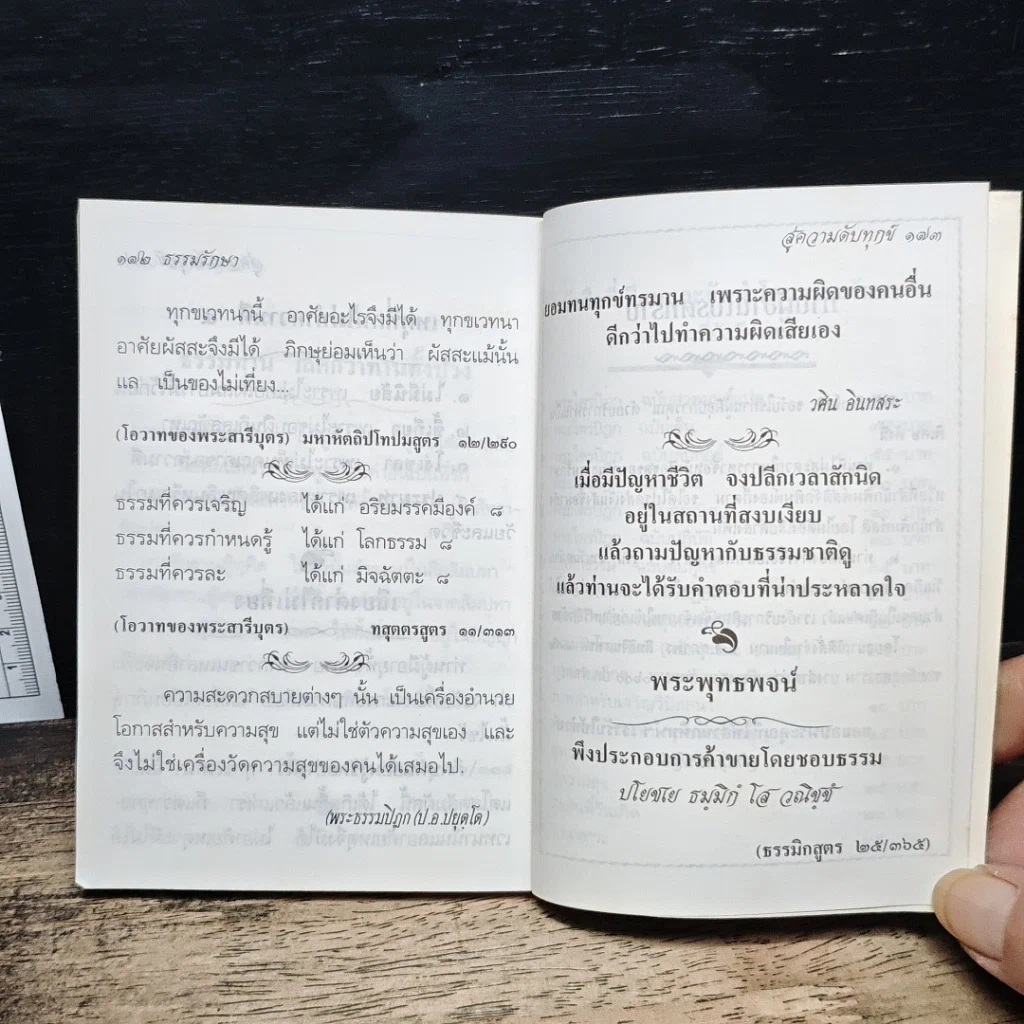 ๑๗๒ ธรรมรักษา
ทุกขเวทนานี้ อาศัยอะไรจึงมีได้ ทุกขเวทนา
อาศัยผัสสะจึงมีได้ ภิกษุย่อมเห็นว่า ผัสสะแม้นั้น
แล เป็นของไม่เที่ยง...
(โอวาทของพระสารีบุตร) มหาหัตถิปโทปมสูตร ๑๒/๒๙๐
ธรรมที่ควรเจริญ ได้แก่ อริยมรรคมีองค์ ๘
ธรรมที่ควรกำหนดรู้ ได้แก่ โลกธรรม ๘
ธรรมที่ควรละ ได้แก่ มิจฉัตตะ ๘
(โอวาทของพระสารีบุตร) ทสุตตรสูตร ๑๑/๓๑๓
ความสะดวกสบายต่างๆ นั้น เป็นเครื่องอำนวย
โอกาสสำหรับความสุข แต่ไม่ใช่ตัวความสุขเอง และ
จึงไม่ใช่เครื่องวัดความสุขของคนได้เสมอไป.
(พระธรรมปิฎก (ป.อ.ปยุตฺโต)
สู่ความดับทุกข์ ๑๗๓
ยอมทนทุกข์ทรมาน เพราะความผิดของคนอื่น
ดีกว่าไปทำความผิดเสียเอง
วศิน อินทสระ
เมื่อมีปัญหาชีวิต จงปลีกเวลาสักนิด
อยู่ในสถานที่สงบเงียบ
แล้วถามปัญหากับธรรมชาติดู
แล้วท่านจะได้รับคำตอบที่น่าประหลาดใจ
พระพุทธพจน์
พึงประกอบการค้าขายโดยชอบธรรม
ปโยชเย ธมฺมิกํ โส วณิชฺชํ
(ธรรมิกสูตร ๒๕/๓๖๕)
2